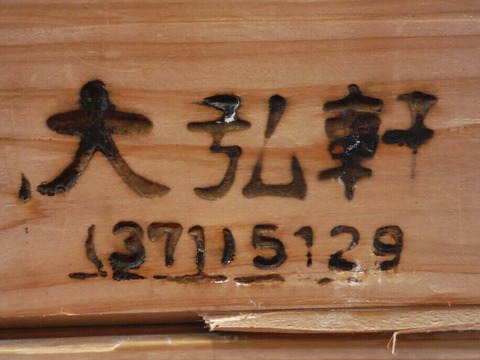 大弘軒
(371)5129